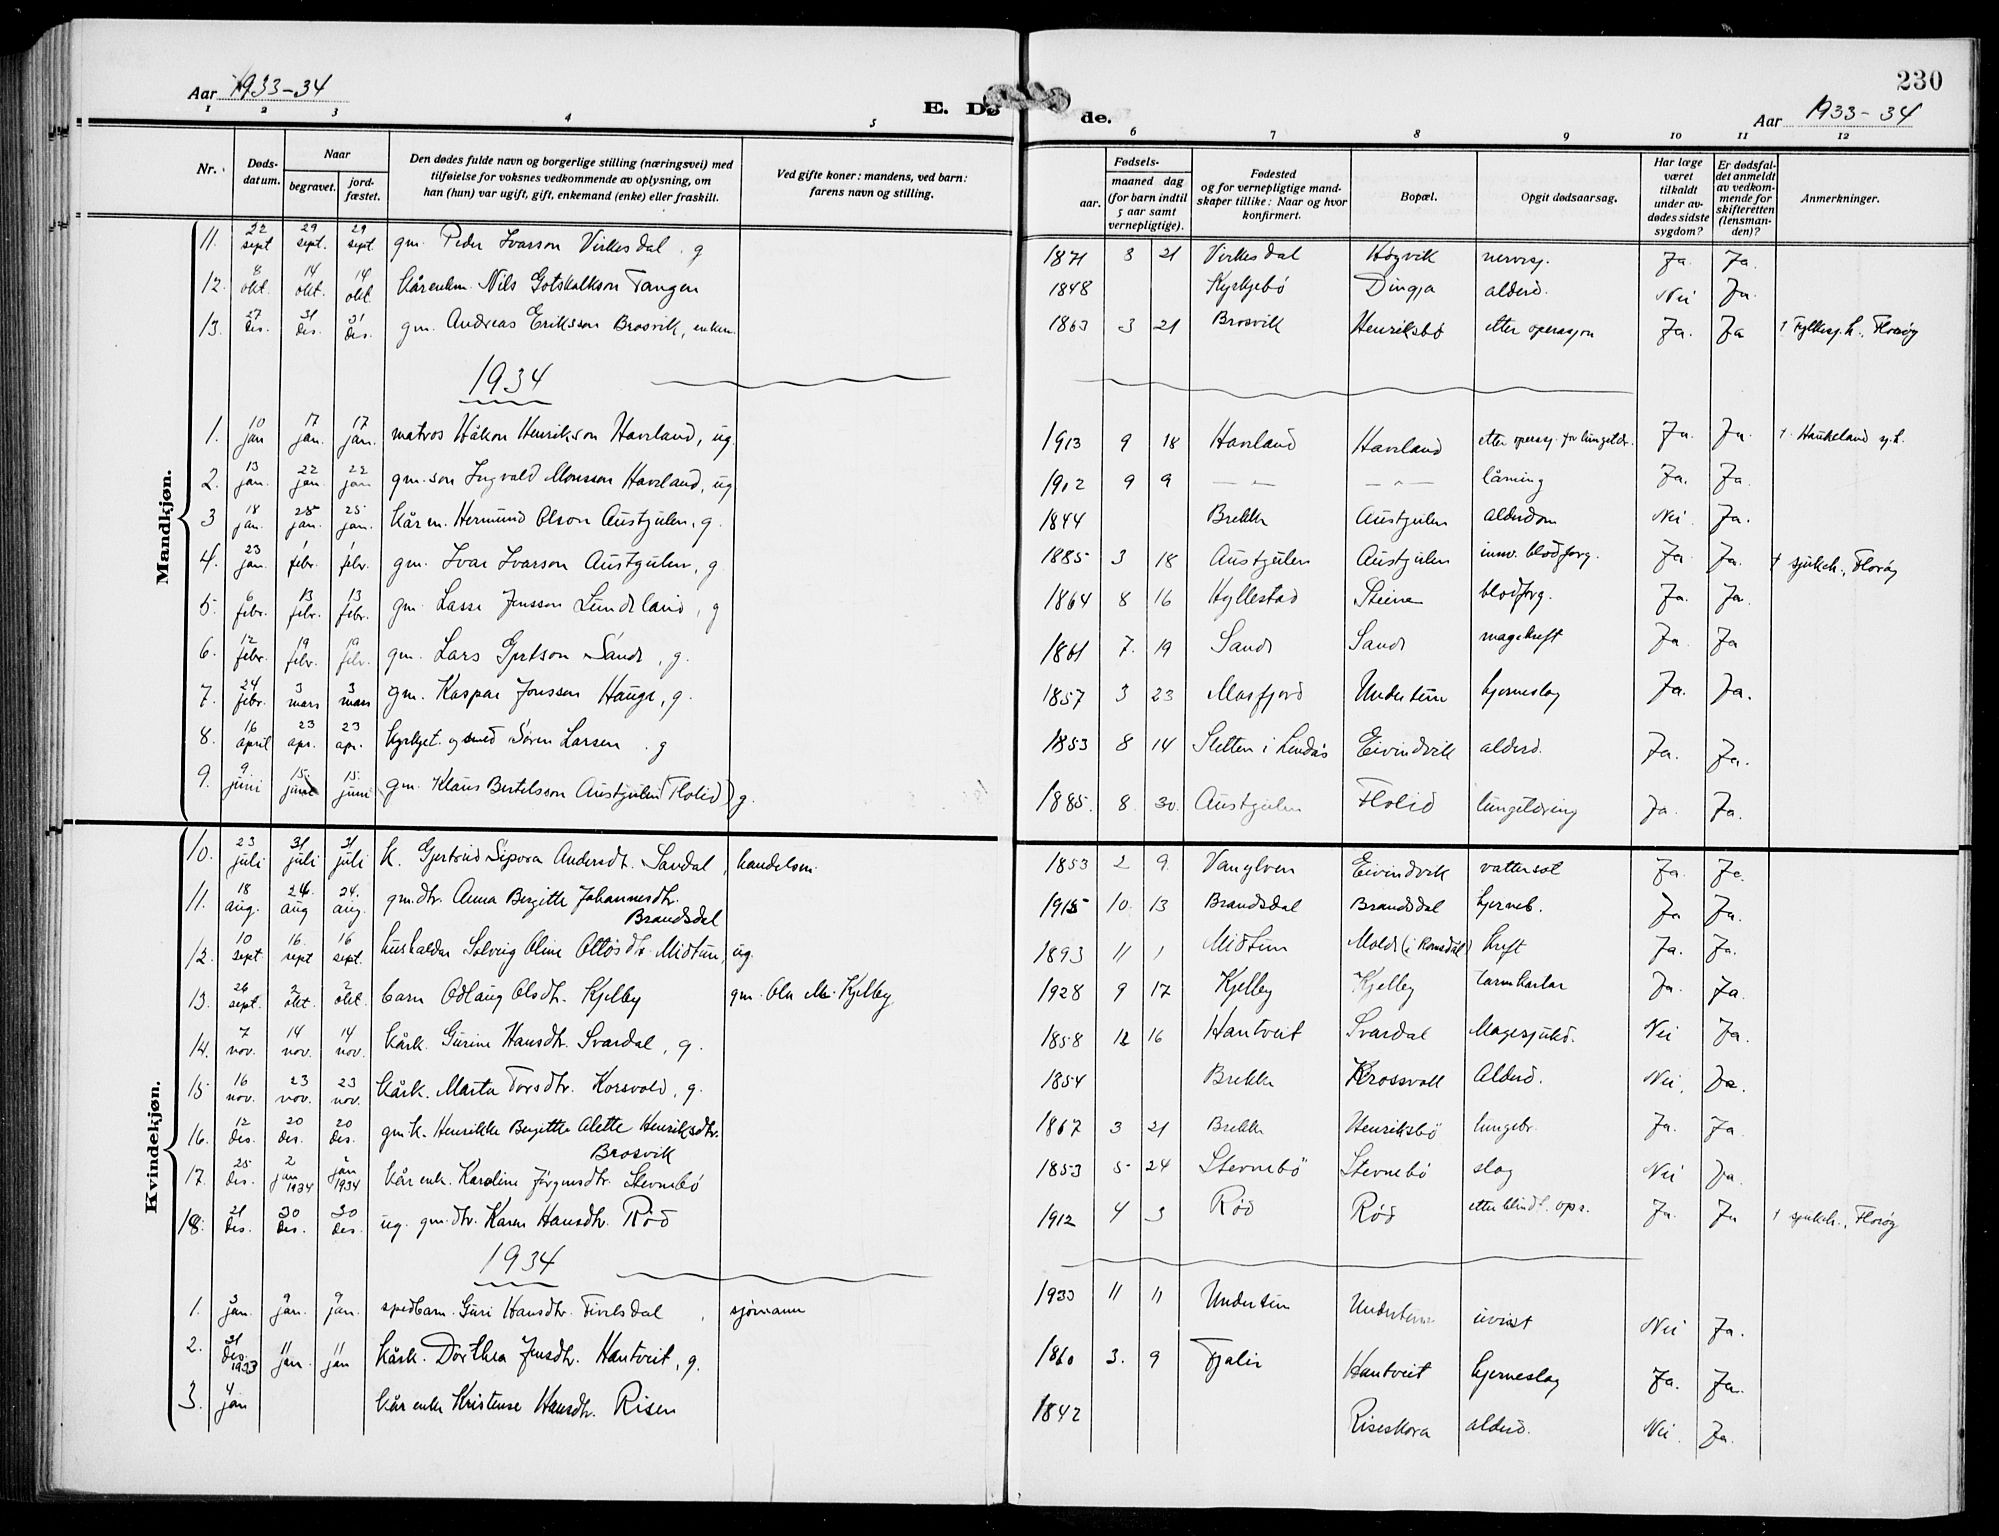 Aar 1933-34
E. Dø de.
Aar 1933-34
230
1 2 3 4 5 6 7 8 9 10 11 12
Nr.
Døds-datum.
Naar
begravet.
jord-fæstet.
Den dødes fulde navn og borgerlige stilling (næringsvei) med
tilføielse for voksnes vedkommende av oplysning, om
han (hun) var ugift, gift, enkemand (enke) eller fraskilt.
Ved gifte koner: mandens, ved barn:
farens navn og stilling.
Fødsels-
aar. maaned dag
(for barn indtil
5 aar samt
vernepligtige).
Fødested
og for vernepligtige mand-
skaper tillike: Naar og hvor
konfirmert.
Bopæl.
Opgit dødsaarsag.
Har læge
været
tilkaldt
under av-
dødes sidste
sygdom?
Er dødsfal-
det anmeldt
av vedkom-
mende for
skifteretten
(lensman-
den)?
Anmerkninger.
Mandkjøn.
11. 22 sept 29 sept. 29 sept. gm. Peder Ivarson Virkesdal. g 1871 3 21 Virkesdal Høyvik nervesj. Ja. Ja.
12. 8 okt. 14 okt. 14 okt. kårenkm. Nils Gotskalkson Tangen 1848 Kyrkjebø Dingja alderd. Nei Ja.
13. 27 des. 31 des. 31 des. gm. Andreas Eriksson Brosvik, enkem. 1863 3 21 Brosvik Henriksbø etter operasjon Ja. Ja † Fylkessj.h., Florøy
1934
1. 10 jan 17 jan. 17 jan. matros Håkon Henrikson Haveland, ug. 1913 9 18 Haveland Haveland etter operasj. for lungetær. Ja. Ja. † Haukeland sj.h.
2. 13 jan. 22 jan. 22 jan gm.son Ingvald Monsson Haveland, ug 1902 9 9 — " — — " — låming Ja. Ja.
3 18 jan. 25 jan. 25 jan. kårm. Hermund Olson Austgulen, g. 1844 Brekke Austgulen alderdom Nei. Ja.
4. 23 jan. 1 febr. 1 febr. gm. Ivar Ivarson Austgulen, g 1885 3 18 Austgulen Austgulen innv. blodforg. Ja. Ja. † sjukeh., Florøy
5. 6 febr. 13 febr. 13 febr. gm. Lasse Jensson Lundeland, g 1864 8 16 Hyllestad Steine blodforg. Ja. Ja.
6. 12 febr. 19 febr. 19 febr. gm. Lars Gjertson Sande, g. 1861 7. 19 Sande Sande magekreft Ja. Ja
7. 24 febr. 3 mars 3 mars gm. Kaspar Jonsson Hauge, g. 1857 3 23 Masfjord Undertun hjerneslag Ja. Ja.
8. 16 april 23 apr. 23 apr. kyrkjet. og smed Søren Larsen . g 1853 8 14 Sletten i Lindås Eivindvik alderd. Ja. Ja.
9. 9 juni 15. juni 15. juni gm. Klaus Bertelsson Austgulen (Flolid) g. 1885. 8 30. Austgulen Flolid lungetæring Ja. Ja.
Kvindekjøn.
10. 23 juli 31 juli 31 juli k. Gjertrud Sipora Andersdt. Sandal, handelsm. 1853 2 9. Vangleven Eivindvik vattersot Ja. Ja.
11. 18 aug. 24. aug 24. aug. gm.dtr. Anna Bergitte Johannesdtr. Brandsdal 1915 10. 13 Brandsdal Brandsdal hjerneb. Ja Ja.
12. 10 sept 16. sept 16 sept. hushaldar Solveig Oline Ottosdtr. Midtun, ug. 1893 11 1 Midtun Molde (i Romsdal) kreft Ja. Ja.
13. 26 sept. 2 okt. 2 okt. barn Odlaug Olsdt. Kjelby gm. Ola M. Kjelby 1928 9 17 Kjelby Kjelby tarmkatar Ja. Ja.
14. 7 nov. 14 nov. 14 nov. kårk. Gurine Hansdtr. Svardal, g. 1858 12 16 Hantveit Svardal Magesjukd. Nei Ja.
15 16 nov. 23 nov. 23 nov. kårk. Marta Torsdtr. Korsvold, g. 1854 Brekke Krossvoll Alderd. Nei. Ja.
16. 12 des. 20 des. 20 des. gm.k. Henrikke Bergitte Alette Henriksdtr. Brosvik 1867 3 21 Brekke Henriksbø lungebr. Ja. Ja
17. 25 des. 2 jan 1934 2 jan 1934 kårenk. Karoline Jørgensdtr. Stevnebø 1853 5 24 Stevnebø Stevnebø slag Nei Ja.
18. 21 des. 30 des. 30 des. ug. gm.dtr. Karen Hansdtr. Rød 1912 4 3 Rød Rød etter blindt. ops. Ja. Ja † sjukeh., Florøy
1934
1. 3 jan. 9 jan. 9 jan. spedbarn. Guri Hansdtr. Tverlsdal, sjømann 1933 11 11 Undertun Undertun uvisst Nei Ja.
2. 31 des. 1933 11 jan. 11 jan kårk. Dorthea Jensdtr. Hantveit, g. 1860 3. 9 Fjaler Hantveit hjerneslag Ja. Ja.
3. 4 jan kårenke Kristense Hansdtr. Risen 1842 Riseskora alderd. Nei. Ja.